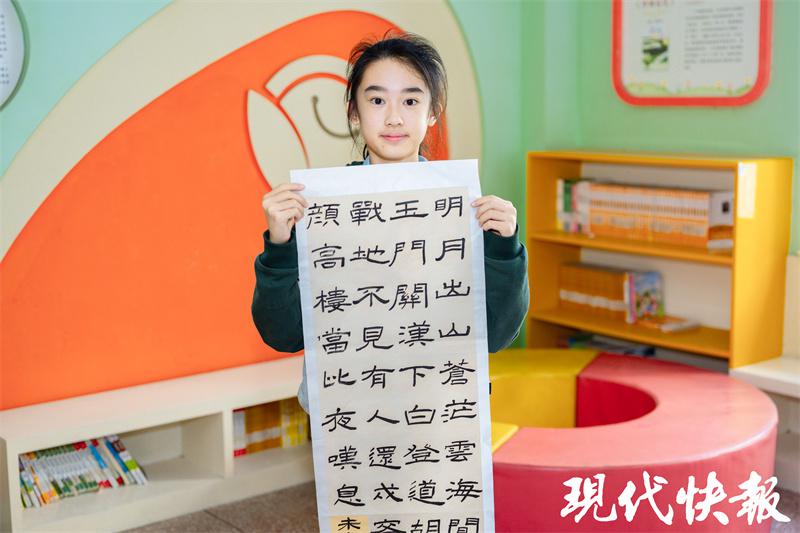 明月出山蒼茫雲海間
玉門關漢下白登道胡
戰地不見有人還戍客
顔高樓當此夜嘆息未
现代快报